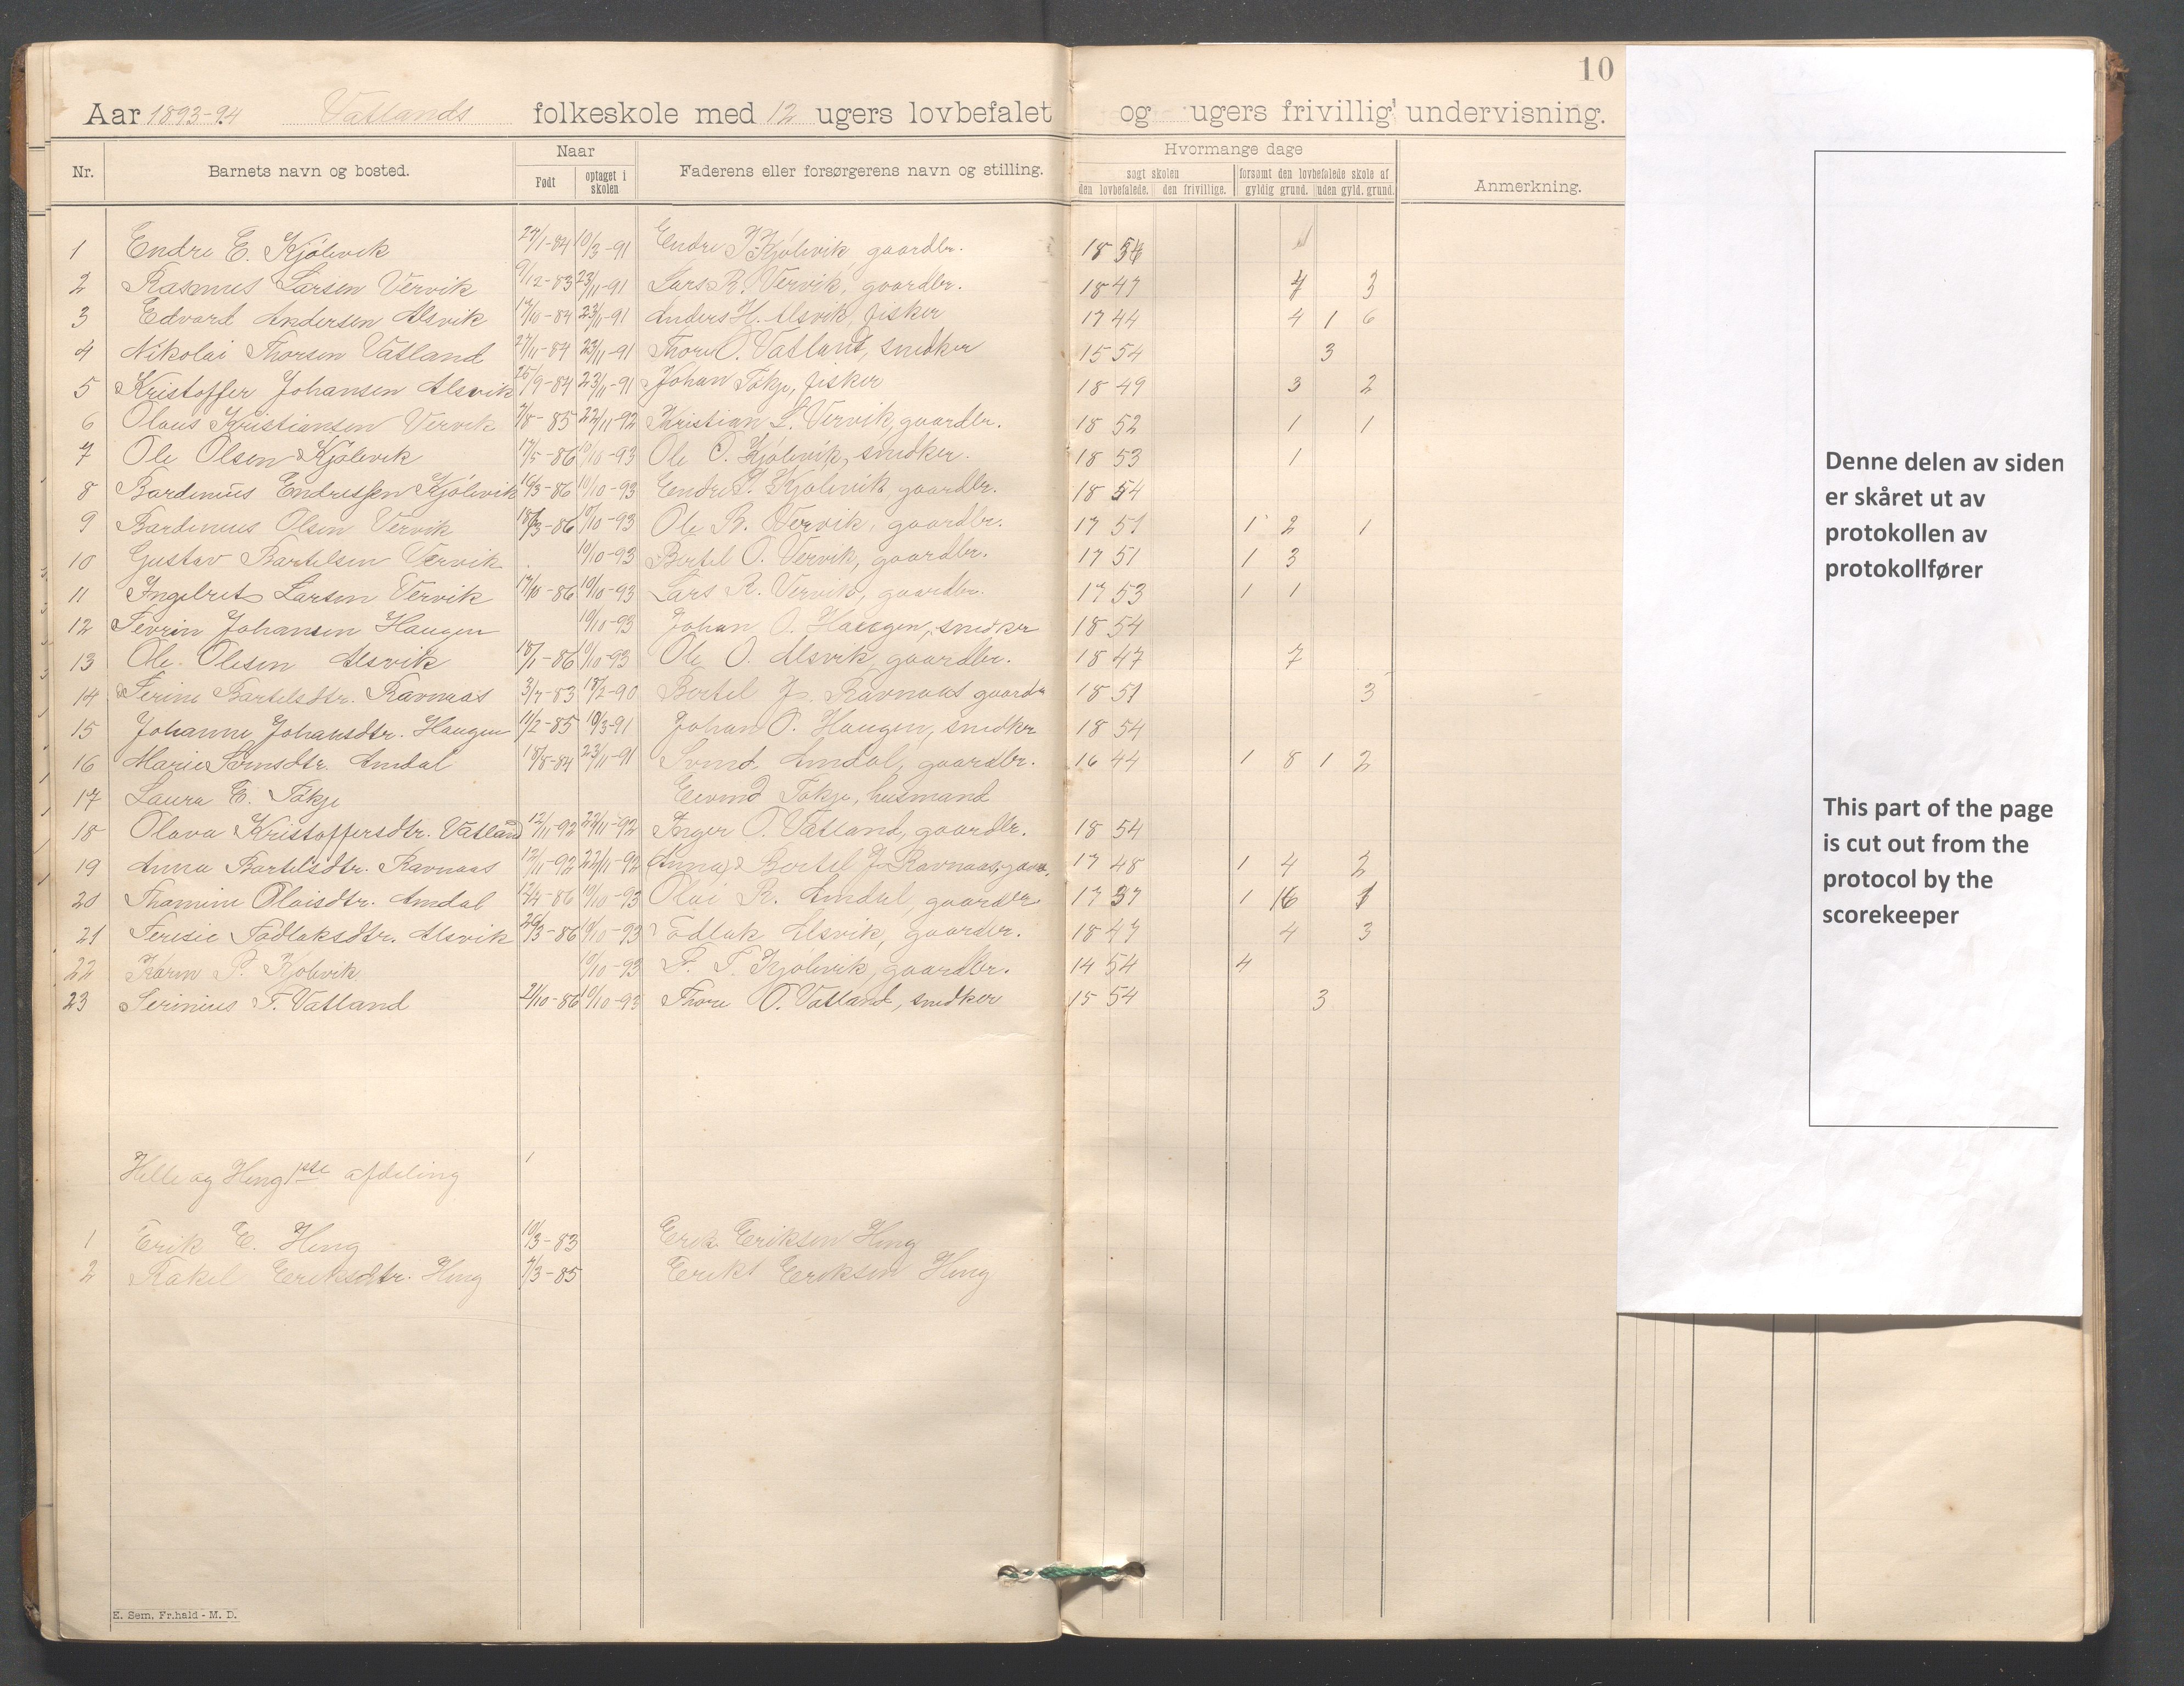 10
Aar 1893-94 Vatlands folkeskole med 12 ugers lovbefalet og ugers frivillig undervisning.
Nr. Barnets navn og bosted. Naar Født optaget i skolen Faderens eller forsørgerens navn og stilling. Hvormange dage søgt skolen den lovbefalede. den frivillige. forsømt den lovbefalede skole af gyldig grund. uden gyld. grund. Anmerkning.
1 Endre E. Kjölevik 27/1-84 10/3-91 Endre Kjölevik, gaardbr. 18 54
2 Rasmus Larsen Vervik 9/12-83 23/11-91 Lars R. Vervik, gaardbr. 18 47 4 3
3 Edvard Andersen Alsvik 17/10-84 23/11-91 Anders H. Alsvik, fisker 17 44 4 1 6
4 Nikolai Thorsen Vatland 27/11-84 23/11-91 Thore O. Vatland, snedker 15 54 3
5 Kristoffer Johansen Alsvik 26/9-84 23/11-91 Johan Tökje, fisker 18 49 3 2
6 Olaus Kristiansen Vervik 7/8-85 22/11-92 Kristian L. Vervik, gaardbr. 18 52 1 1
7 Ole Olsen Kjölevik 17/5-86 10/10-93 Ole O. Kjölevik, snedker. 18 53 1
8 Bardinius Endressen Kjölevik 16/3-86 10/10-93 Endre Kjölevik, gaardbr. 18 54
9 Bardinius Olsen Vervik 18/3-86 10/10-93 Ole R. Vervik, gaardbr. 17 51 1 2 1
10 Gustav Bartelsen Vervik 10/10-93 Bertel O. Vervik, gaardbr. 17 51 1 3
11 Ingebret Larsen Vervik 17/10-86 10/10-93 Lars R. Vervik, gaardbr. 17 53 1 1
12 Sevrin Johansen Haugen 10/10-93 Johan O. Haugen, snedker 18 54
13 Ole Olesen Alsvik 18/1-86 10/10-93 Ole O. Alsvik, gaardbr. 18 47 7
14 Serine Bartelsdtr. Ravnaas 3/7-83 18/2-90 Bertel J. Ravnaas gaardbr 18 51 3
15 Johanne Johansdtr. Haugen 11/2-85 10/3-91 Johan O. Haugen, snedker 18 54
16 Marie Svensdtr. Amdal 18/8-84 23/11-91 Svend Amdal, gaardbr. 16 44 1 8 1 2
17 Laura E. Tökje Eivind Tökje, husmand
18 Olava Kristoffersdtr. Vatland 12/11-92 22/11-92 Inger O. Vatland, gaardbr. 18 54
19 Anna Bartelsdtr. Ravnaas 12/11-92 22/11-92 (Anna) Bertel J. Ravnaas, gaardbr. 17 48 1 4 2
20 Thomine Olaisdtr. Amdal 12/4-86 10/10-93 Olai R. Amdal, gaardbr 17 37 1 16 1
21 Teresie Tadlaksdtr. Alsvik 26/3-86 10/10-93 Tadlak Alsvik, gaardbr. 18 47 4 3
22 Karen P. Kjölevik 10/10-93 P. T. Kjölevik, gaardbr. 14 54 4
23 Serinius T. Vatland 21/10-86 10/10-93 Thore O. Vatland, snedker 15 54 3
Helle og Heng 1ste afdeling
1 Erik E. Heng 10/3-83 Erik Eriksen Heng
2 Rakel Eeriksdtr. Heng 7/3-85 Eerik Eeriksen Heng
E. Sem. Fr.hald - M. D.
Denne delen av siden
er skåret ut av
protokollen av
protokollfører
This part of the page
is cut out from the
protocol by the
scorekeeper